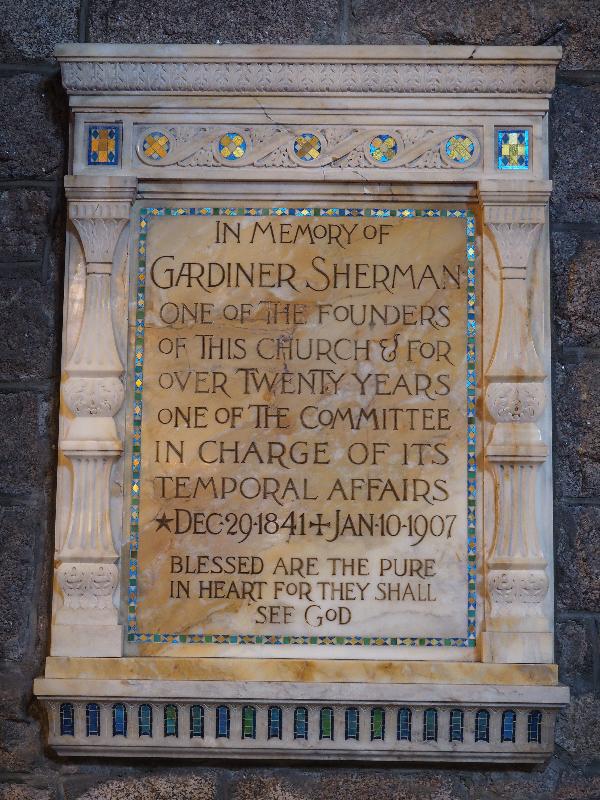 IN MEMORY OF
GARDINER SHERMAN
ONE OF THE FOUNDERS
OF THIS CHURCH & FOR
OVER TWENTY YEARS
ONE OF THE COMMITTEE
IN CHARGE OF ITS
TEMPORAL AFFAIRS
★DEC·29·1841✝JAN·10·1907
BLESSED ARE THE PURE
IN HEART FOR THEY SHALL
SEE GOD